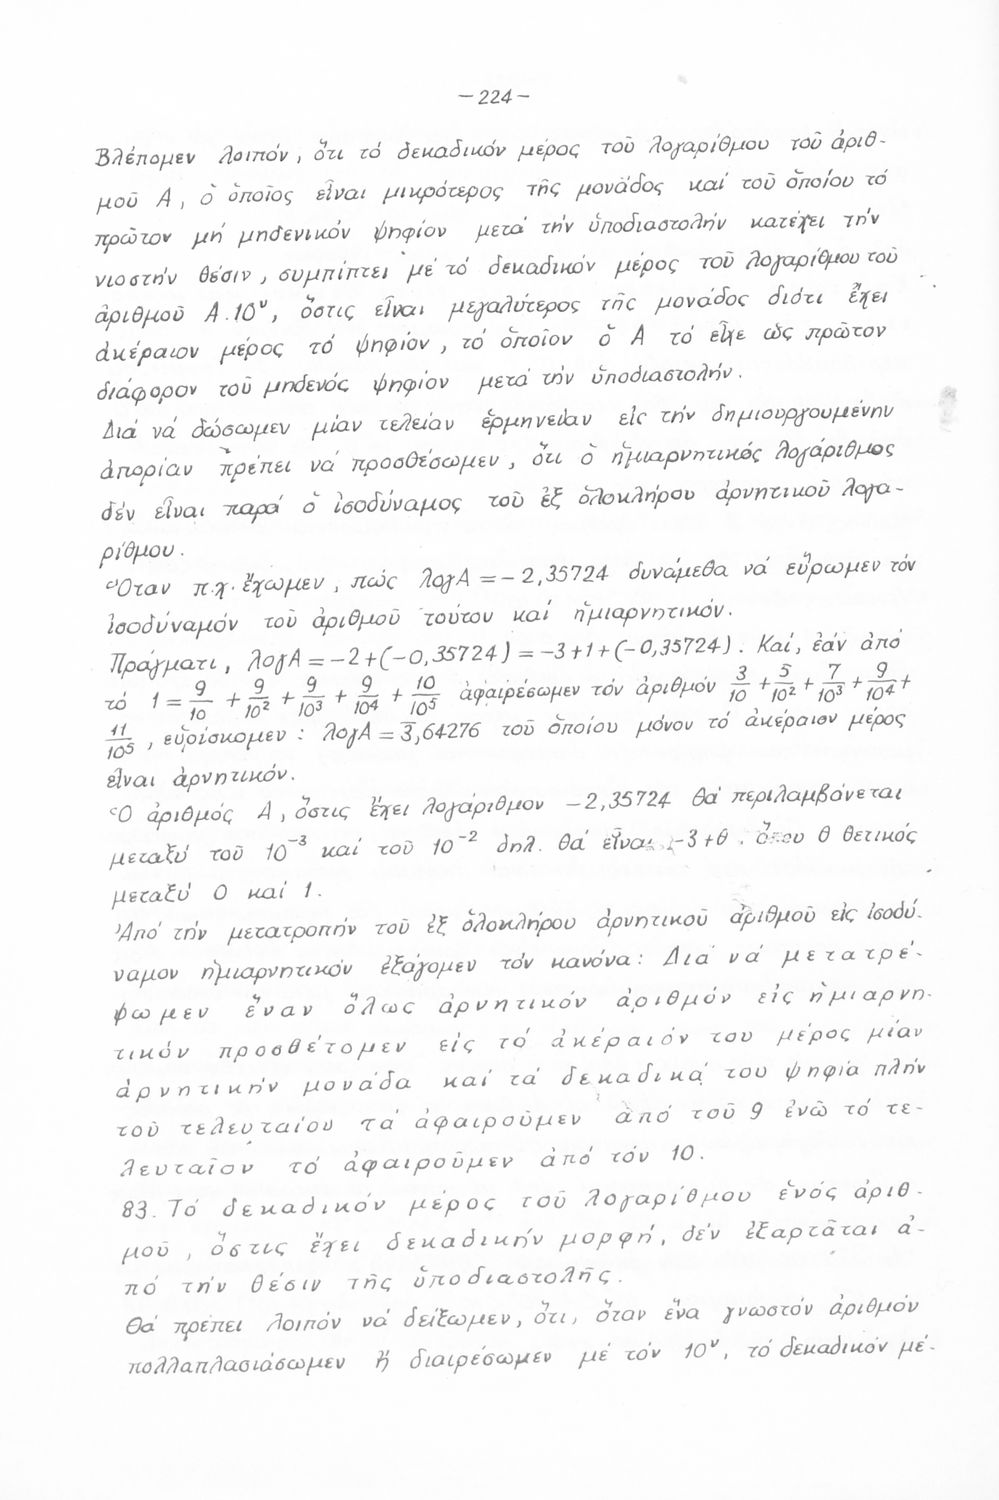 -224-
Βλέπομεν λοιπόν, ὅτι τό δεκαδικόν μέρος τοῦ λογαρίθμου τοῦ ἀριθ-
μοῦ Α, ὁ ὁποῖος εἶναι μικρότερος τῆς μονάδος καί τοῦ ὁποίου τό
πρῶτον μή μηδενικόν ψηφίον μετά τήν ὑποδιαστολήν κατέχει τήν
νιοστήν θέσιν, συμπίπτει μέ τό δεκαδικόν μέρος τοῦ λογαρίθμου τοῦ
ἀριθμοῦ Α.10^ν, ὅστις εἶναι μεγαλύτερος τῆς μονάδος διότι ἔχει
ἀκέραιον μέρος τό ψηφίον, τό ὁποῖον ὁ Α τό εἶχε ὡς πρῶτον
διάφορον τοῦ μηδενός ψηφίον μετά τήν ὑποδιαστολήν.
Διά νά δώσωμεν μίαν τελείαν ἑρμηνείαν εἰς τήν δημιουργουμένην
ἀπορίαν πρέπει νά προσθέσωμεν, ὅτι ὁ ἡμιαρνητικός λογάριθμος
δέν εἶναι παρά ὁ ἰσοδύναμος τοῦ ἐξ ὁλοκλήρου ἀρνητικοῦ λογα-
ρίθμου.
Ὅταν π.χ. ἔχωμεν, πώς λογΑ = -2,35724 δυνάμεθα νά εὕρωμεν τόν
ἰσοδύναμόν τοῦ ἀριθμοῦ τούτου καί ἡμιαρνητικόν.
Πράγματι, λογΑ = -2+(-0,35724) = -3+1+(-0,35724). Καί, ἐάν ἀπό
τό 1 = 9/10 + 9/10² + 9/10³ + 9/10⁴ + 10/10⁵ ἀφαιρέσωμεν τόν ἀριθμόν 3/10 + 5/10² + 7/10³ + 9/10⁴ +
11/10⁵, εὑρίσκομεν : λογΑ = 3̅,64276 τοῦ ὁποίου μόνον τό ἀκέραιον μέρος
εἶναι ἀρνητικόν.
Ὁ ἀριθμός Α, ὅστις ἔχει λογάριθμον -2,35724 θά περιλαμβάνεται
μεταξύ τοῦ 10⁻³ καί τοῦ 10⁻² δηλ. θά εἶναι -3+θ. ὅπου θ θετικός
μεταξύ 0 καί 1.
Ἀπό τήν μετατροπήν τοῦ ἐξ ὁλοκλήρου ἀρνητικοῦ ἀριθμοῦ εἰς ἰσοδύ-
ναμον ἡμιαρνητικόν ἐξάγομεν τόν κανόνα: Διά νά μετατρέ-
ψωμεν ἕναν ὅλως ἀρνητικόν ἀριθμόν εἰς ἡμιαρνη-
τικόν προσθέτομεν εἰς τό ἀκέραιόν του μέρος μίαν
ἀρνητικήν μονάδα καί τά δεκαδικά του ψηφία πλήν
τοῦ τελευταίου τά ἀφαιροῦμεν ἀπό τοῦ 9 ἐνῶ τό τε-
λευταῖον τό ἀφαιροῦμεν ἀπό τόν 10.
83. Τό δεκαδικόν μέρος τοῦ λογαρίθμου ἑνός ἀριθ-
μοῦ, ὅστις ἔχει δεκαδικήν μορφή, δέν ἐξαρτᾶται ἀ-
πό τήν θέσιν τῆς ὑποδιαστολῆς.
Θά πρέπει λοιπόν νά δείξωμεν, ὅτι, ὅταν ἕνα γνωστόν ἀριθμόν
πολλαπλασιάσωμεν ἤ διαιρέσωμεν μέ τόν 10^ν, τό δεκαδικόν μέ-